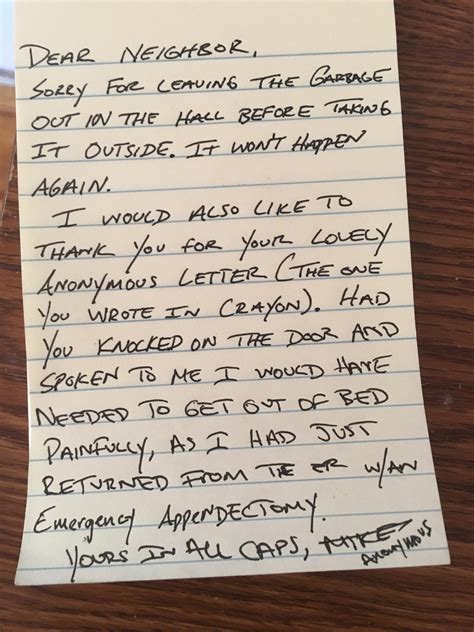 DEAR NEIGHBOR,
SORRY FOR LEAVING THE GARBAGE
OUT IN THE HALL BEFORE TAKING
IT OUTSIDE. IT WON'T HAPPEN
AGAIN.
I WOULD ALSO LIKE TO
THANK YOU FOR YOUR LOVELY
ANONYMOUS LETTER (THE ONE
YOU WROTE IN CRAYON). HAD
YOU KNOCKED ON THE DOOR AND
SPOKEN TO ME I WOULD HAVE
NEEDED TO GET OUT OF BED
PAINFULLY, AS I HAD JUST
RETURNED FROM THE ER W/AN
Emergency APPENDECTOMY.
YOURS IN ALL CAPS, MIKE
ANONYMOUS